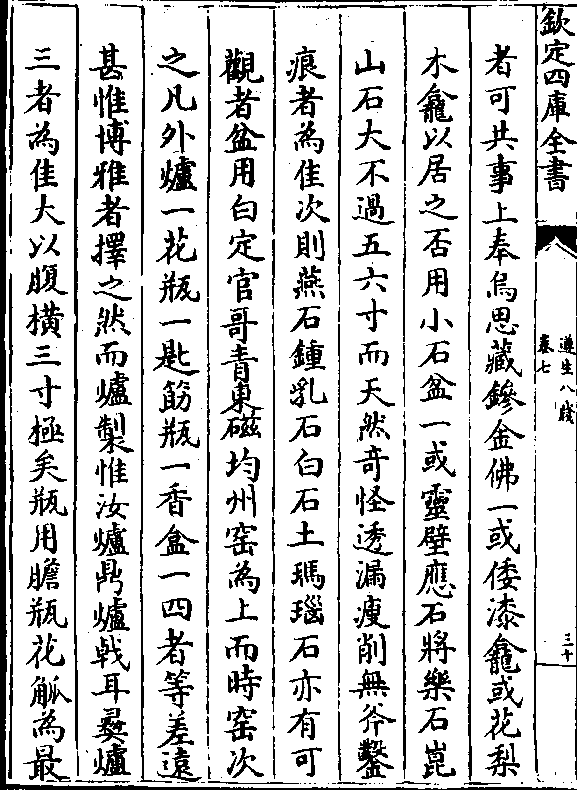 欽定四庫全書
遵生八牋
卷七
三十
者可共事上奉烏思藏鏒金佛一或倭漆龕或花梨
木龕以居之否用小石盆一或靈壁應石將樂石崑
山石大不過五六寸而天然奇怪透漏瘦削無斧鑿
痕者為佳次則燕石鍾乳石白石土瑪瑙石亦有可
觀者盆用白定官哥青東磁均州窑為上而時窑次
之凡外爐一花瓶一匙筯瓶一香盒一四者等差遠
甚惟博雅者擇之然而爐製惟汝爐鼎爐㦸耳彛爐
三者為佳大以腹横三寸極矣瓶用膽瓶花觚為最